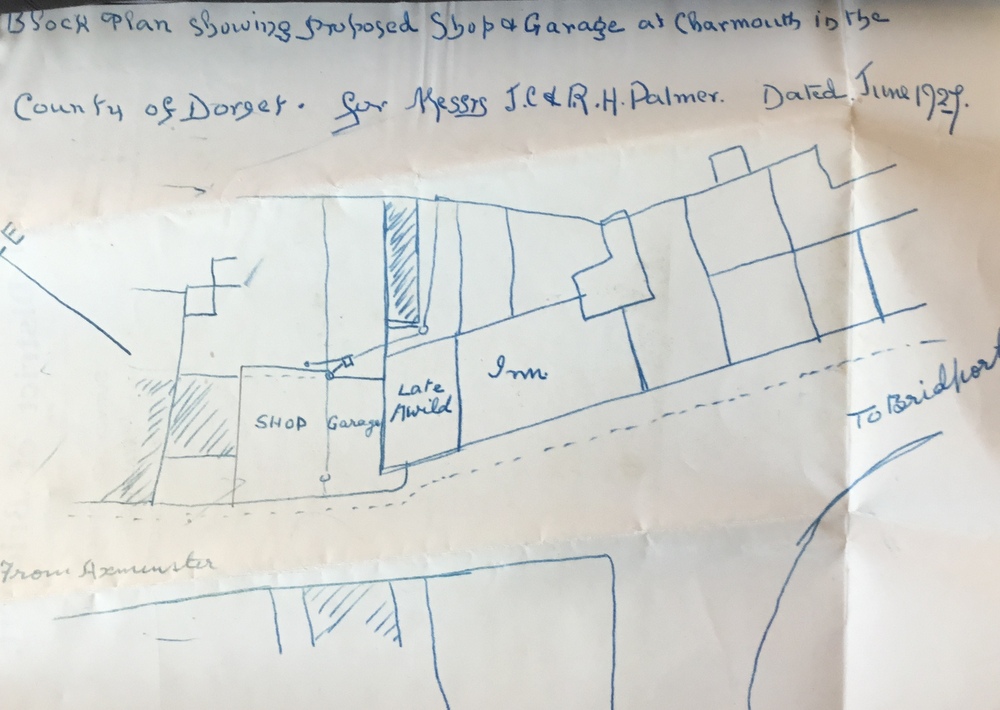 Block Plan showing proposed Shop & Garage at Charmouth in the
County of Dorset. for Messrs J.C & R.H. Palmer. Dated June 1927.
E
SHOP
Garage
Late
Inn
To Bridport
From Axminster